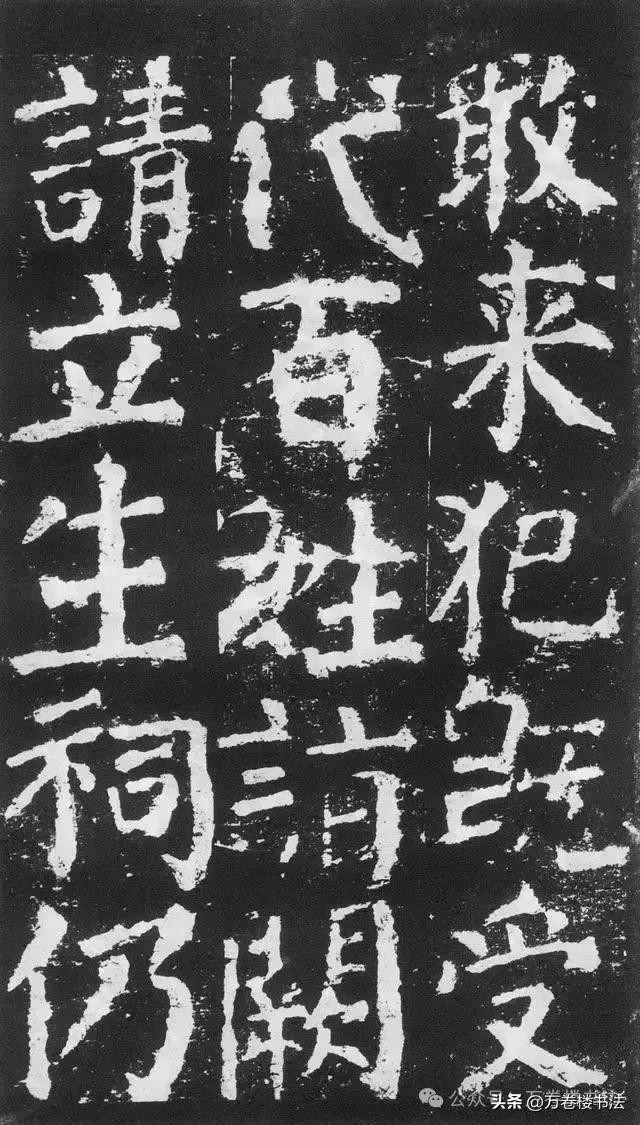 敢来犯既受
代百姓詣闕
請立生祠仍
公众号
头条 @万卷楼书法